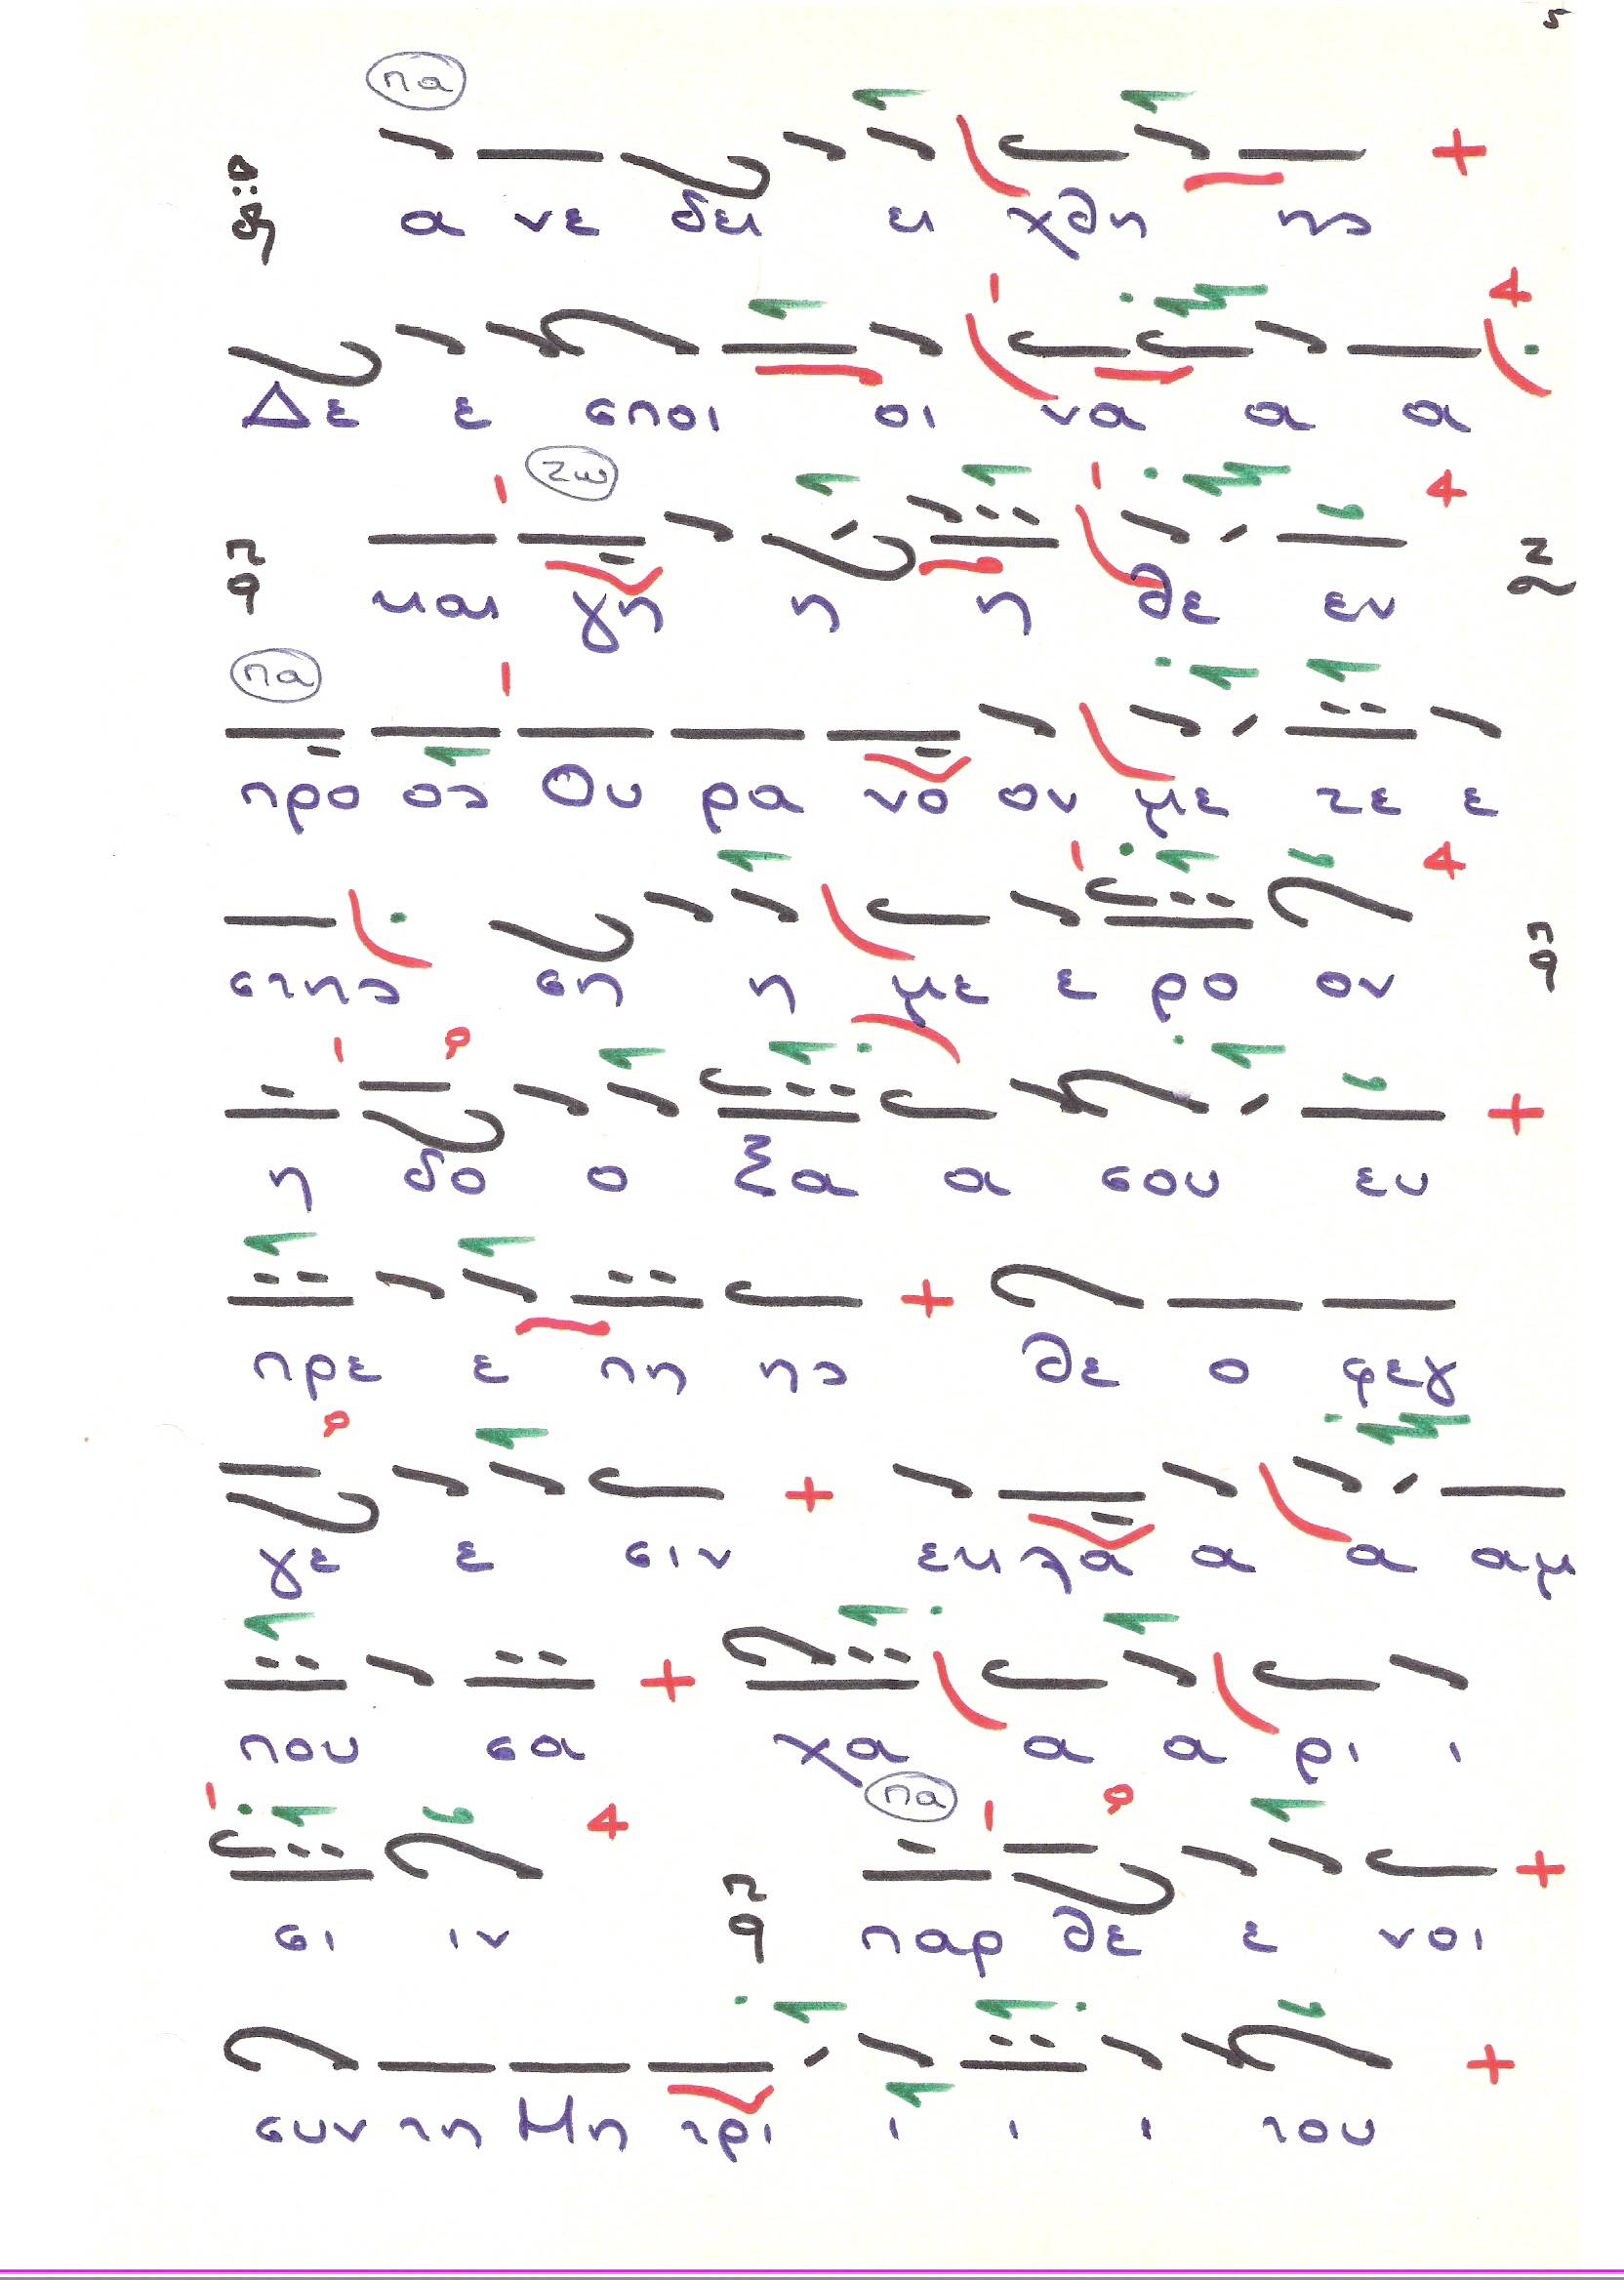 5
πα
α νε δει ει χθη ης
Δε ε σποι οι να α α
ζω
και γη η η θε εν
πα
προ ος Ου ρα νο ον με τε ε
στης ση η με ε ρο ον
η δο ο ξα α σου ευ
πρε ε πη ης θε ο φεγ
γε ε σιν εκ λα α α αμ
που σα χα α α ρι ι
πα
σι ιν παρ θε ε νοι
συν τη Μη τρι ι ι ι του